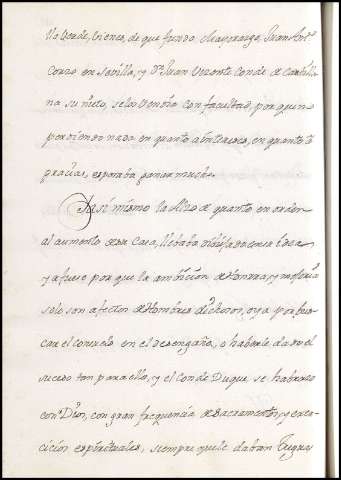 Valverde, Lienco, de que fundo Mayorazgo, Juan Antº
Corzo en Sevilla, y Dn Juan Vizente Conde de Cantilla
na su nieto, selos Vendio con facultad, por que no
perdiendo nada en quanto a interesses, en quanto a
gracias, esperaba ganar mucho.
Assi mismo la Alzo de quanto en orden
al aumento de su Casa,
y a fuese por que la ambicion de Honrra, y
solo son afectos de Hombres dichosos, o ya por bus
car el consuelo en el desengaño, o haberle dado el
suceso ton para ello, y el Conde Duque se habrazo
con Dios, con gran frequencia de Sacramentos, y exer
cicios espirituales, siempre que le daban treguas